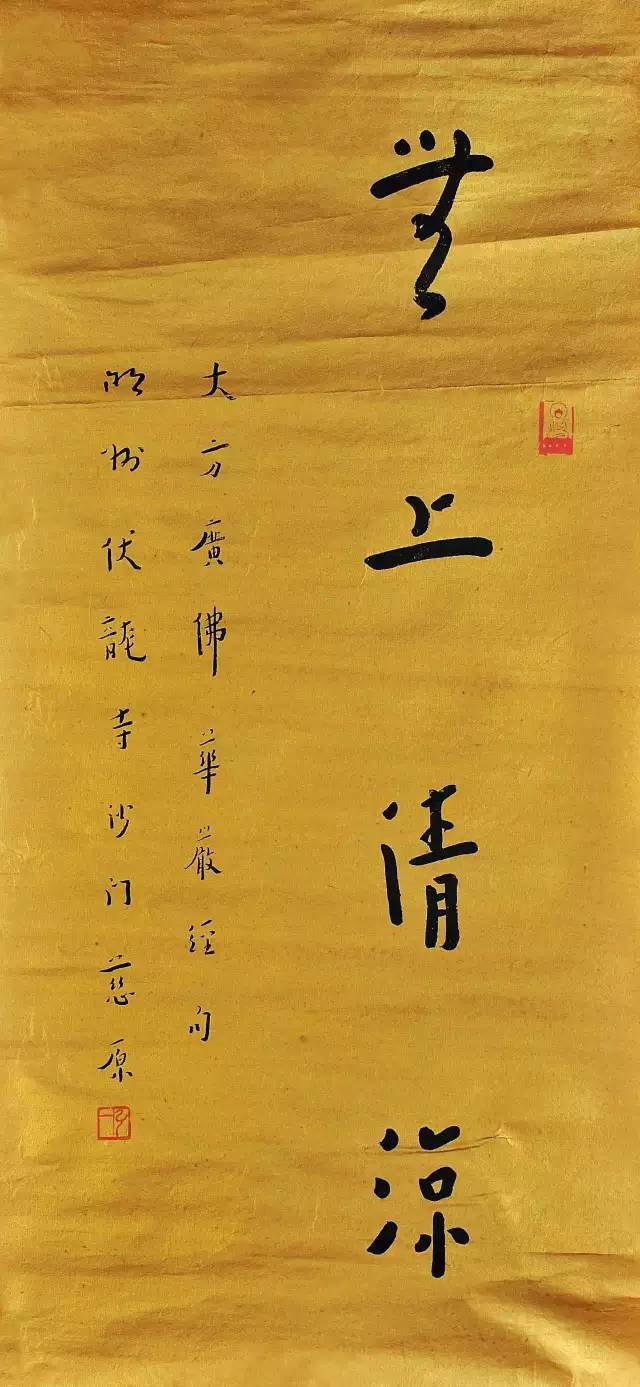 無上清凉
大方廣佛華嚴經句
明州伏龍寺沙门慈原